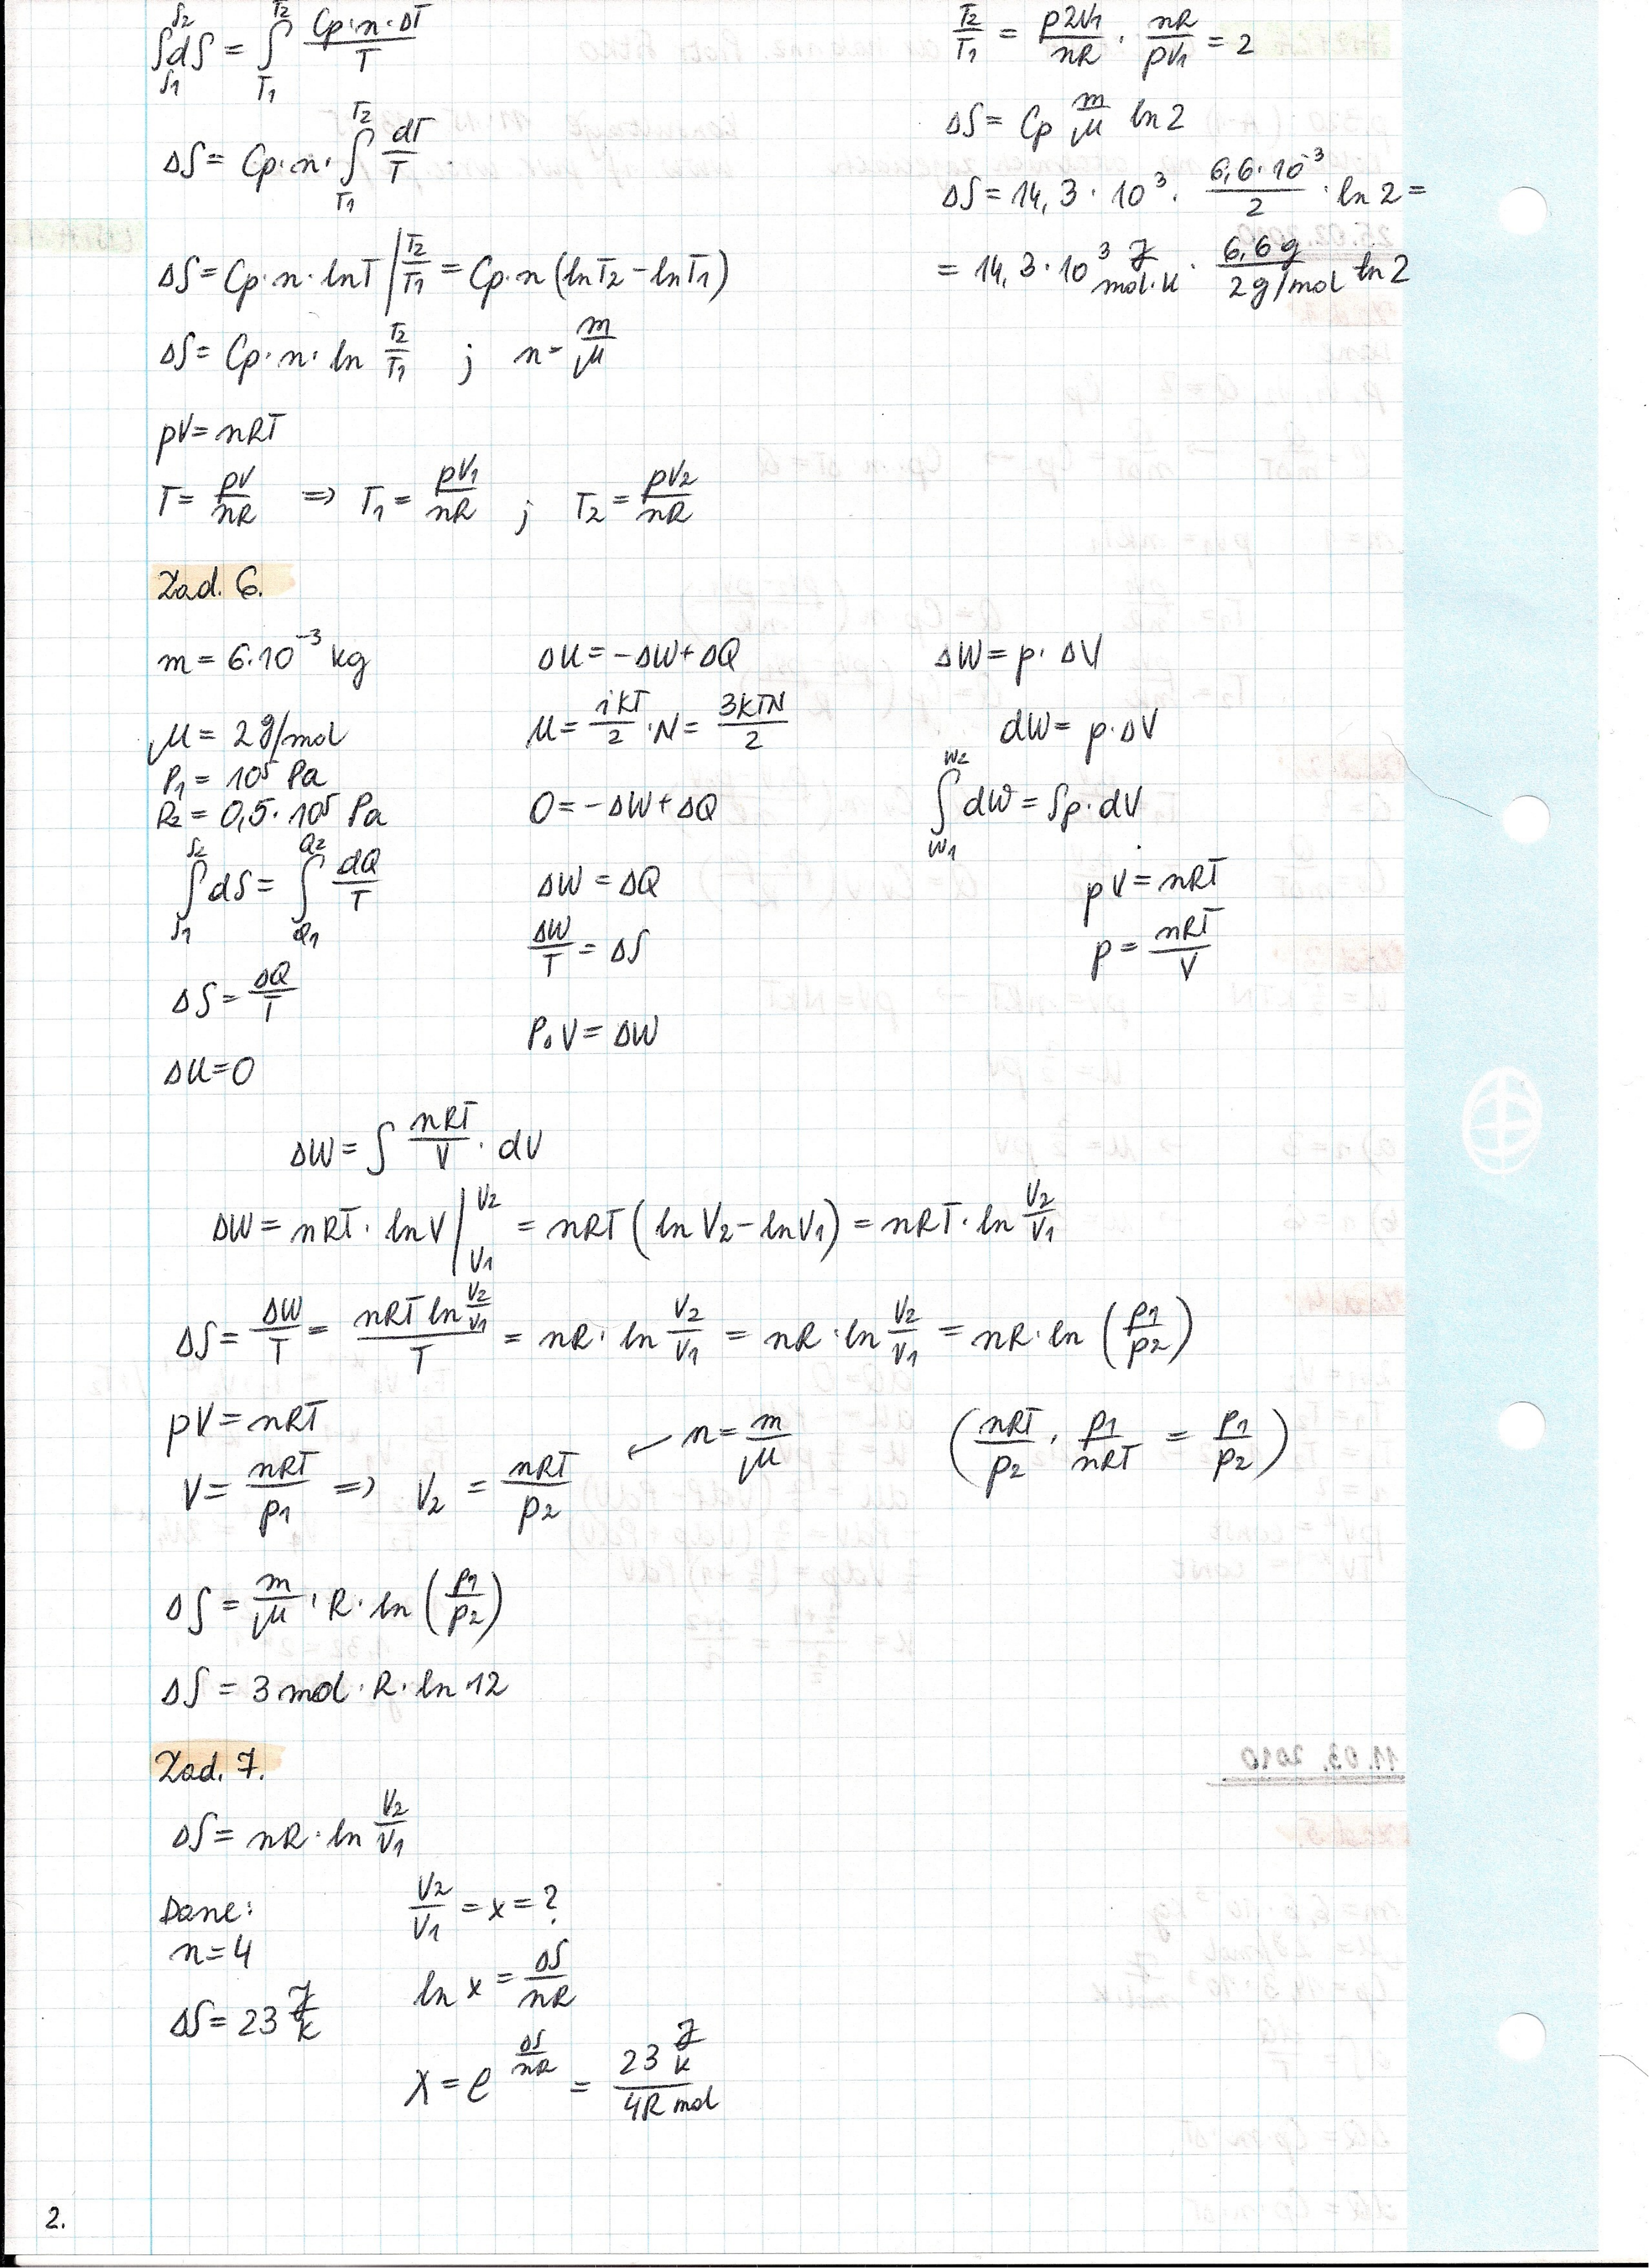 ∫_{S1}^{S2} dS = ∫_{T1}^{T2} Cp·n·ΔT / T
ΔS = Cp·n· ∫_{T1}^{T2} dT / T
ΔS = Cp·n· lnT |^{T2}_{T1} = Cp·n (lnT2 - lnT1)
ΔS = Cp·n· ln T2/T1 ; n = m/μ
pV = nRT
T = pV/nR => T1 = pV1/nR ; T2 = pV2/nR
T2/T1 = p2V1/nR · nR/pV1 = 2
ΔS = Cp m/μ ln2
ΔS = 14,3·10³ · 6,6·10⁻³/2 · ln2 =
= 14,3·10³ J/mol·K · 6,6g/2g/mol ln2
Zad. 6.
m = 6·10⁻³ kg
μ = 2g/mol
P1 = 10⁵ Pa
P2 = 0,5·10⁵ Pa
∫_{S1}^{S2} dS = ∫_{Q1}^{Q2} dQ/T
ΔS = ΔQ/T
ΔU = 0
ΔU = -ΔW + ΔQ
U = ikT/2 · N = 3kTN/2
0 = -ΔW + ΔQ
ΔW = ΔQ
ΔW/T = ΔS
P₀V = ΔW
ΔW = p·ΔV
dW = p·ΔV
∫_{W1}^{W2} dW = ∫p·dV
pV = nRT
p = nRT/V
ΔW = ∫ nRT/V · dV
ΔW = nRT· lnV |^{V2}_{V1} = nRT (lnV2 - lnV1) = nRT· ln V2/V1
ΔS = ΔW/T = nRT ln V2/V1 / T = nR· ln V2/V1 = nR· ln V2/V1 = nR· ln (p1/p2)
pV = nRT
V = nRT/p1 => V2 = nRT/p2 ← n = m/μ (nRT/p2 · p1/nRT = p1/p2)
ΔS = m/μ · R· ln (p1/p2)
ΔS = 3mol· R· ln 12
Zad. 7.
ΔS = nR· ln V2/V1
Dane:
n=4
ΔS = 23 J/K
V2/V1 = x = ?
ln x = ΔS/nR
x = e^{ΔS/nR} = 23 J/K / 4R mol
2.